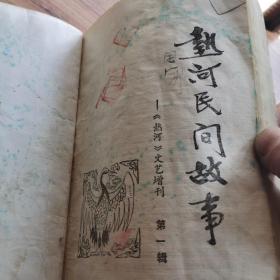 热河民间故事
—《热河》文艺增刊
第一辑